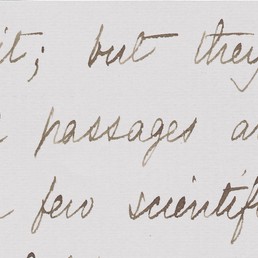 it; but they
passages a
few scientif